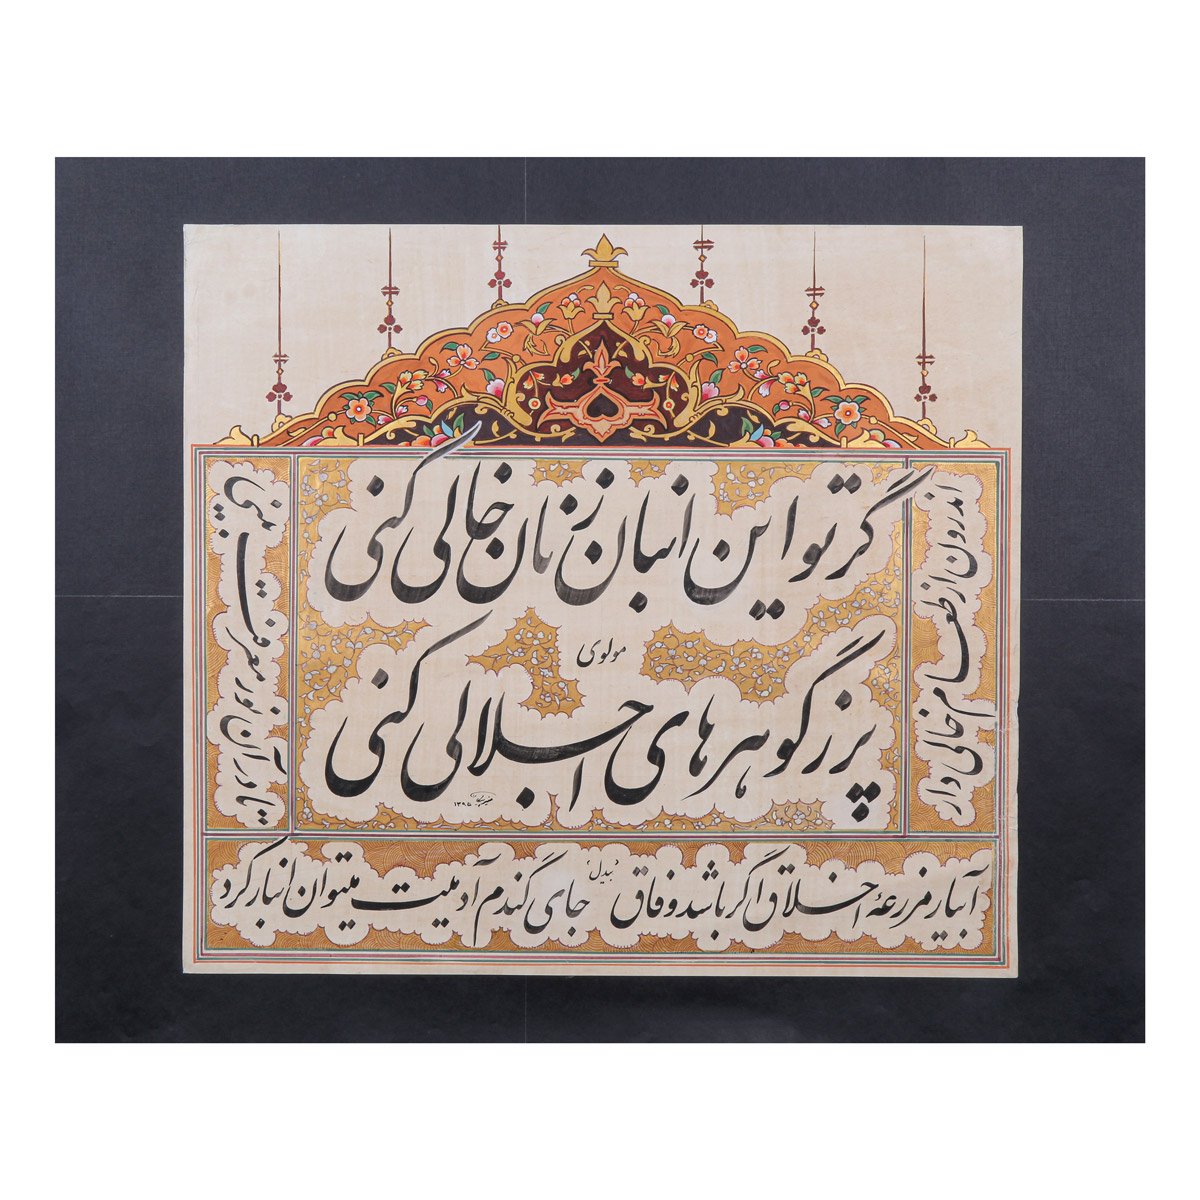 گر تو این انبان ز نان خالی کنی
مولوی
پر ز گوهرهای اجلالی کنی
۱۳۹۵
اندرون از طعام خالی دار
تا در آن نور معرفت بینی
آبیار مزرعهٔ اخلاق اگر باشد وفاق
بیدل
جای گندم آدمیت میتوان انبار کرد